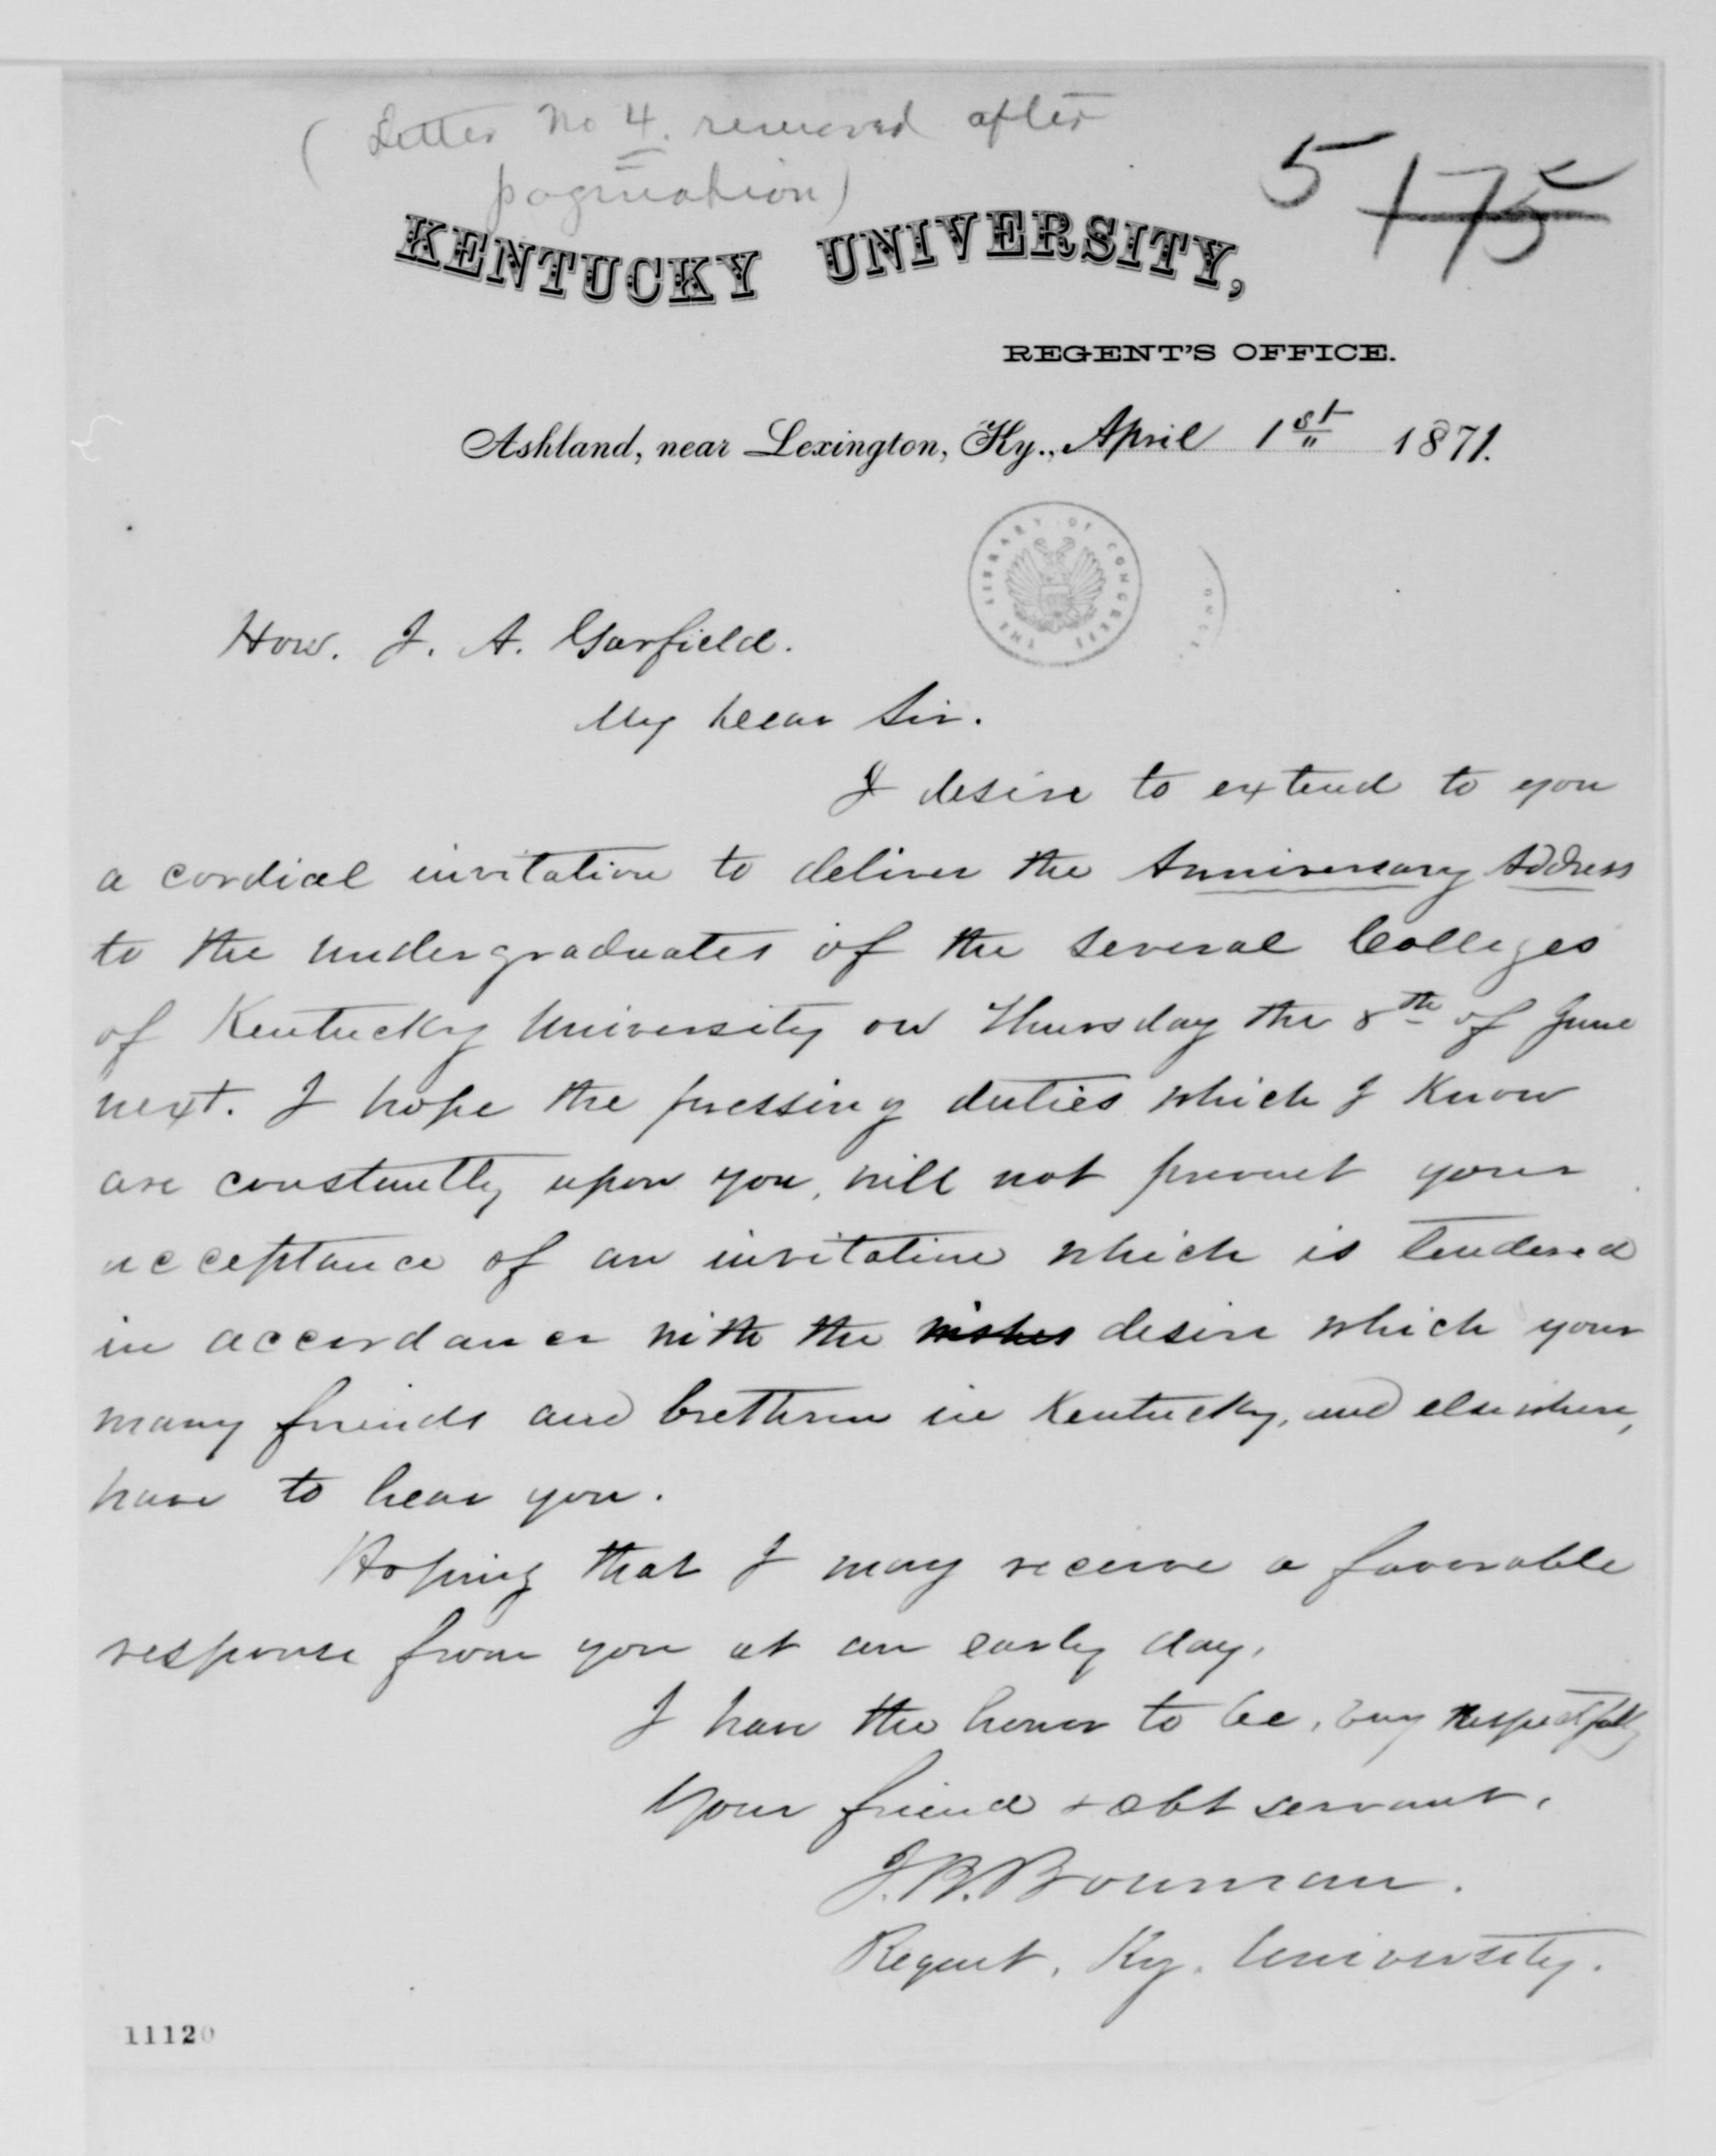 ( Letter No 4. removed after
pagination)
5 175
KENTUCKY UNIVERSITY,
REGENT'S OFFICE.
Ashland, near Lexington, Ky., April 1st 1871.
THE LIBRARY OF CONGRESS
Hon. J. A. Garfield.
My Dear Sir.
I desire to extend to you
a cordial invitation to deliver the Anniversary Address
to the undergraduates of the several Colleges
of Kentucky University on Thursday the 8th of June
next. I hope the pressing duties which I know
are constantly upon you, will not prevent your
acceptance of an invitation which is tendered
in accordance with the wishes desire which your
many friends and brethren in Kentucky, and elsewhere,
have to hear you.
Hoping that I may receive a favorable
response from you at an early day,
I have the honor to be, very respectfully
Your friend & obt servant,
J. B. Bowman.
Regent, Ky. University.
11120